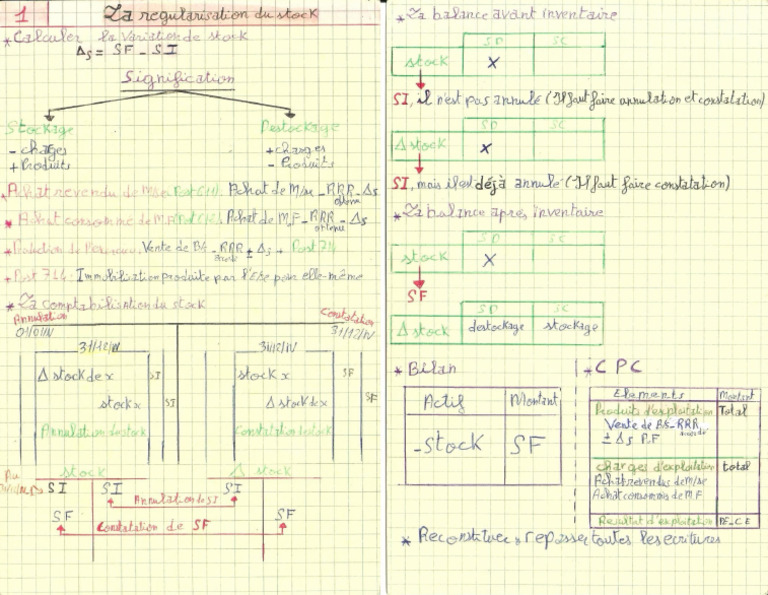 1 La regularisation du stock
* Calculer la Variation de stock
Δs = SF - SI
Signification
Stockage
Destockage
- charges
+ Produits
+ charges
- Produits
* Achat revendu de M/se Post (611). Achat de M/se - RRR obtenu - Δs
* Achat consommé de M.F Post (612). Achat de M.F - RRR obtenu - Δs
Vente de B/s - RRR ± Δs + Post 714
* Post 714. Immobilisation produite par l'Ese pour elle-même
* La comptabilisation du stock
Annulation
Constatation
01/01/N
31/12/N
31/12/N
31/12/N
Δ stock de x SI
stock x SI
Annulation de stock
stock x SF
Δ stock de x SF
Constatation de stock
stock
Δ stock
Au
SI SI SI
Annulation de SI
SF SF
Constatation de SF
* La balance avant inventaire
SD SC
stock X
SI, il n'est pas annulé (Il faut faire annulation et constatation)
SD SC
Δ stock X
SI, mais il est déjà annulé (Il faut faire constatation)
* La balance après inventaire
SD SC
stock X
SF
SD SC
Δ stock destockage stockage
* Bilan
Actif Montant
- stock SF
* C P C
Elements Montant
Produits d'exploitation Total
Vente de B/s - RRR accordé
± Δs P.F
charges d'exploitation total
Achat revendus de M/se
Achat consommés de M.F
Resultat d'exploitation PE - C.E
* Reconstituer, repasser toutes les ecritures